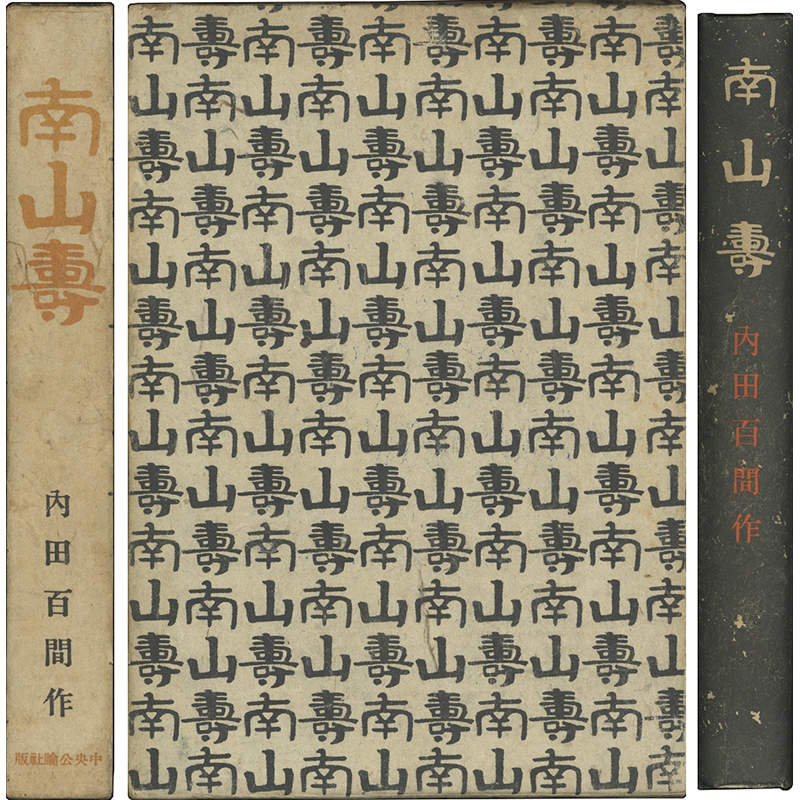 南山壽
內田百間作
中央公論社版
壽南山壽南山壽南山壽南山壽南
南山壽南山壽南山壽南山壽南山
壽南山壽南山壽南山壽南山壽南
南山壽南山壽南山壽南山壽南山
壽南山壽南山壽南山壽南山壽南
南山壽南山壽南山壽南山壽南山
壽南山壽南山壽南山壽南山壽南
南山壽南山壽南山壽南山壽南山
壽南山壽南山壽南山壽南山壽南
南山壽南山壽南山壽南山壽南山
南山壽
內田百間作